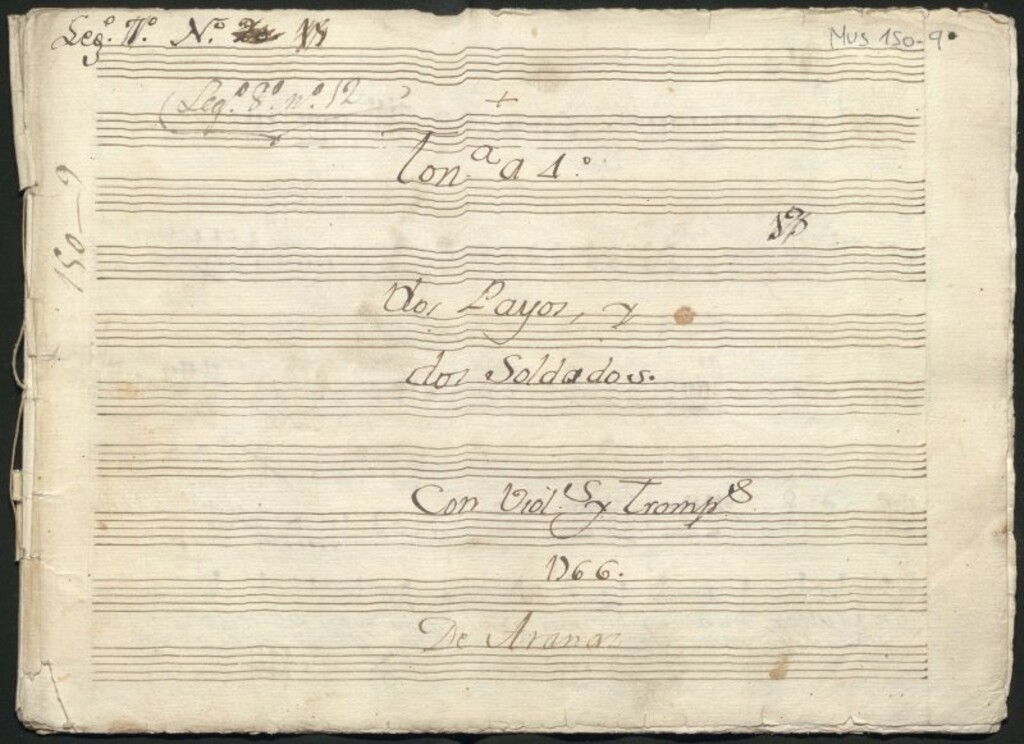 Leg.º 7.º N.º
Mus 150-9
(Leg.º 8.º n.º 12
+
Ton.ª a 4.º
150-9
dos Payos, y
dos Soldados.
Con Viol.s y Tromp.s
1766.
De Arana